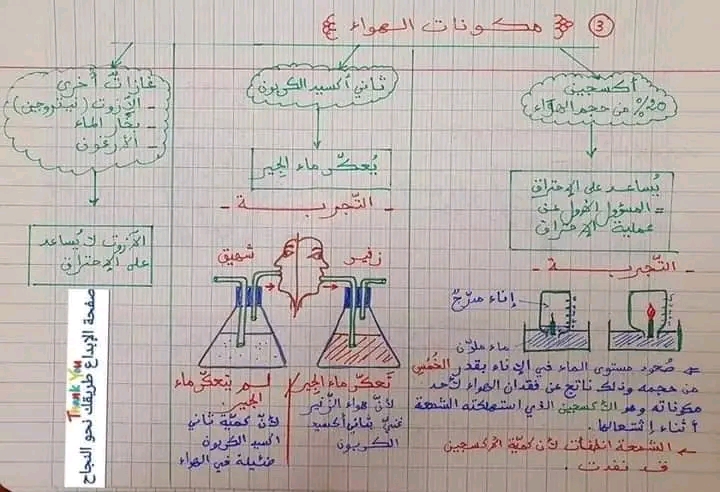 ③ مكونات الهواء
أكسجين
20% من حجم الهواء
يُساعد على الإحتراق
= المسؤول الأول عن
عملية الإحتراق
- التّجربة -
إناء مدرّج
ماء ملوّن
صعود مستوى الماء في الإناء بقدر الخُمُس
من حجمه وذلك ناتج عن فقدان الهواء لأحد
مكوناته وهو الأكسجين الذي استهلكته الشمعة
أثناء إشتعالها.
الشمعة انطفأت لأن كميّة الأكسجين
قد نفدت.
ثاني أكسيد الكربون
يُعكّر ماء الجير
- التّجربة -
زفير
شهيق
تَعكّر ماء الجير
لأنّ هواء الزّفير
غنيّ بثاني أكسيد
الكربون
لم يتعكّر ماء
الجير
لأنّ كميّة ثاني
أكسيد الكربون
ضئيلة في الهواء
غازاتٌ أخرى
- الآزوت (نيتروجين)
- بخار الماء
- الأرغون
الآزوت لا يُساعد
على الإحتراق
Thank You
صفحة الإبداع طريقك نحو النجاح